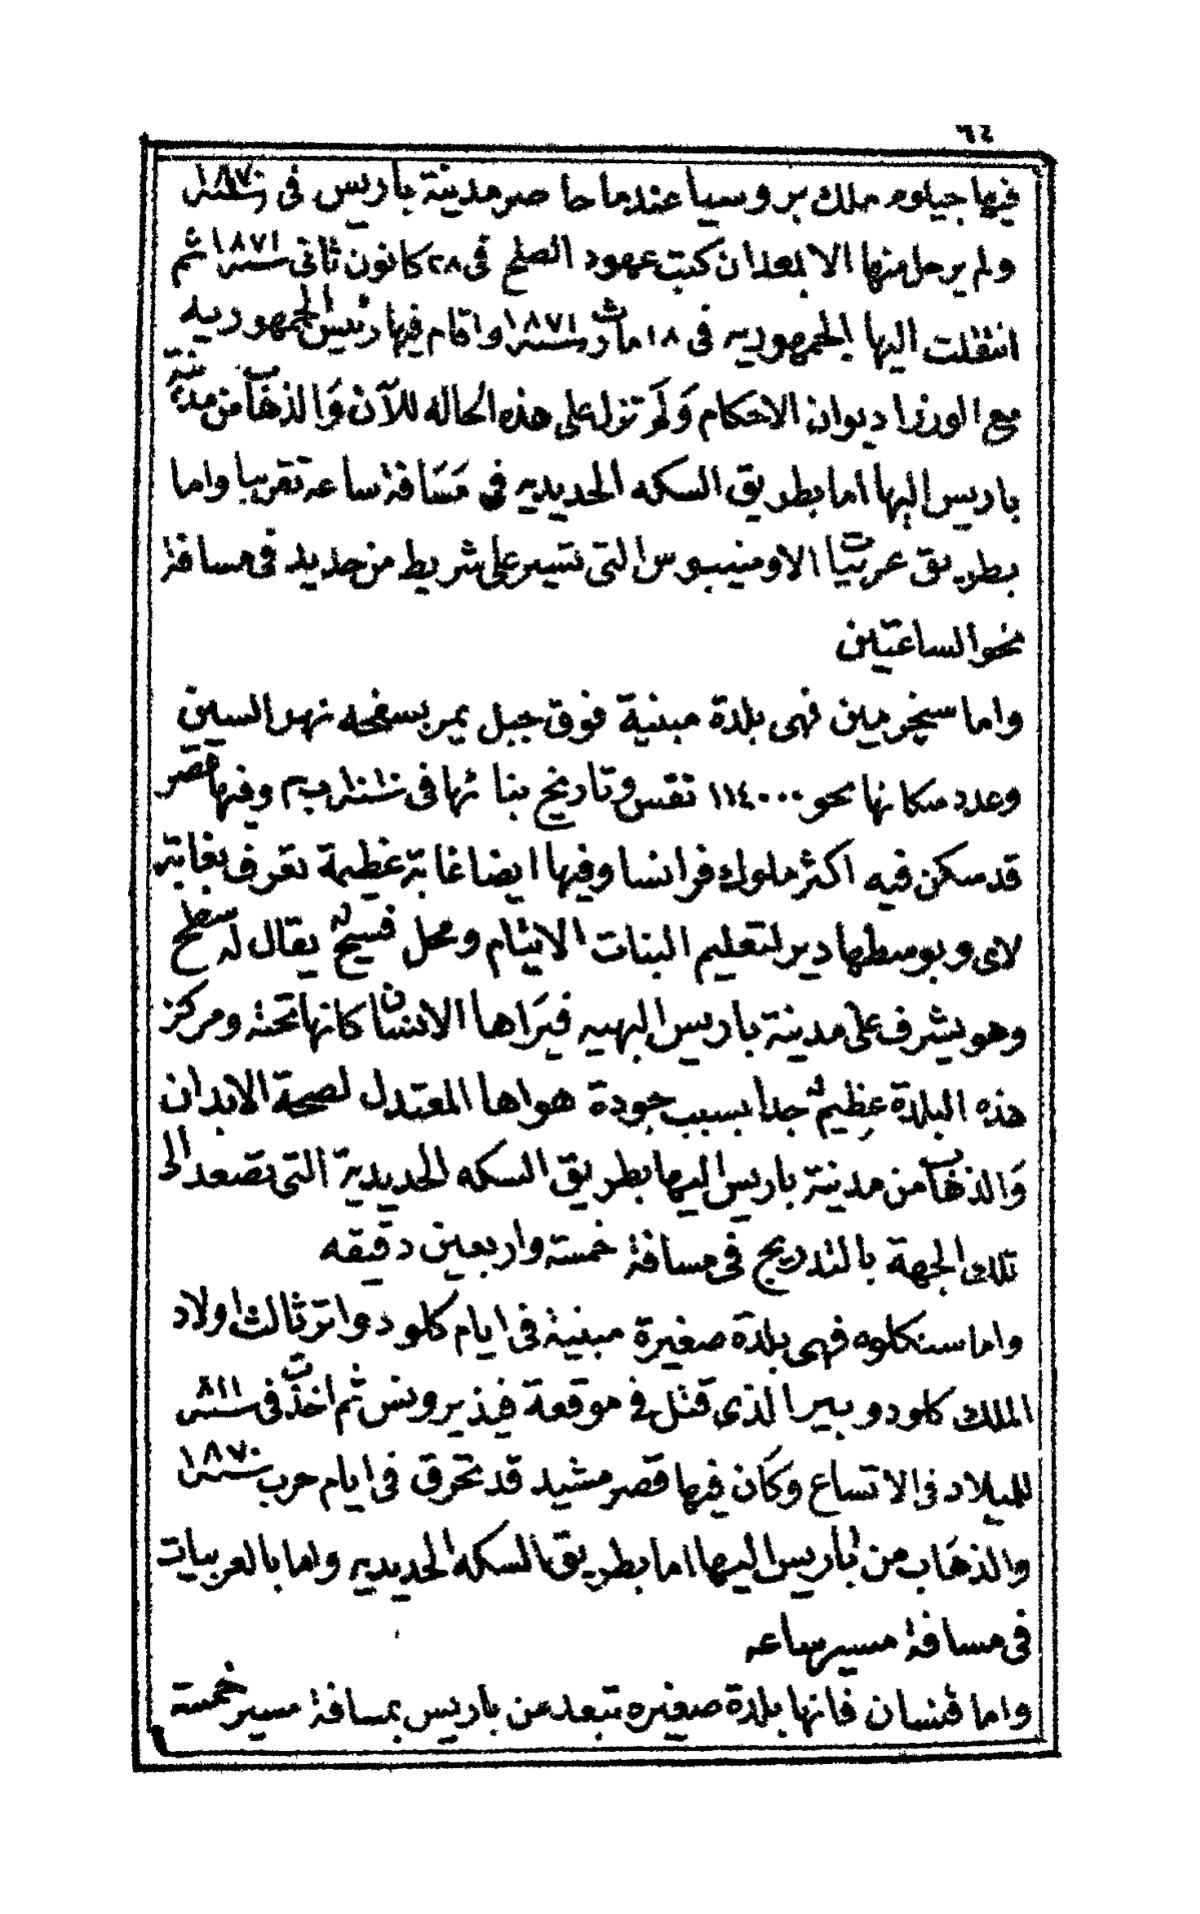 ٦٤
فيها جيلوم ملك بروسيا عندما حاصر مدينة باريس فى سنة ١٨٧٠
ولم يرحل منها الا بعد ان كتبت عهود الصلح فى ٢٨ كانون ثانى سنة ١٨٧١ ثم
انتقلت اليها الجمهوريه فى ١٨ مارث سنة ١٨٧١ واقام فيها رئيس الجمهوريه
مع الوزرا ديوان الاحكام وَلَم تزل على هذه الحاله للآن وَالذهاب من مدينة
باريس اليها اما بطريق السكه الحديديه فى مَسَافة ساعة تقريبا واما
بطريق عربيات الاومنيبوس التى تسير على شريط من حديد فى مسافة
نحو الساعتين
واما سنجرمين فهى بلدة مبنية فوق جبل يمر بسفحه نهر السين
وعدد سكانها نحو ١١٤٠٠٠ نفس وتاريخ بنائها فى سنة ١٠٢٠ م وفيها قصر
قد سكن فيه اكثر ملوك فرانسا وفيها ايضا غابة عظيمة تعرف بغابة
لاى وبوسطها دير لتعليم البنات الايتام ومحل فسيح يقال له سطح
وهو يشرف على مدينة باريس البهيه فيَرَاها الانسان كانها تحته ومركز
هذه البلدة عظيم جدا بسبب جودة هواها المعتدل لصحة الابدان
وَالذهاب من مدينة باريس اليها بطريق السكه الحديدية التى تصعد الى
تلك الجهة بالتدريج فى مسافة خمسة واربعين دقيقه
واما سنكلوه فهى بلدة صغيرة مبنية فى ايام كلودواتر ثالث اولاد
الملك كلودوبير الذى قتل فى موقعة فيذيرونس ثم اخذت فى سنة ٨١١
للميلاد فى الاتساع وكَان فيها قصر مشيد قد تحرق فى ايام حرب سنة ١٨٧٠
والذهَاب من باريس اليها اما بطريق السكه الحديديه واما بالعربيات
فى مسافة مسير ساعه
واما فنسان فانها بلدة صغيره تبعد عن باريس بمسافة مسير خمسة